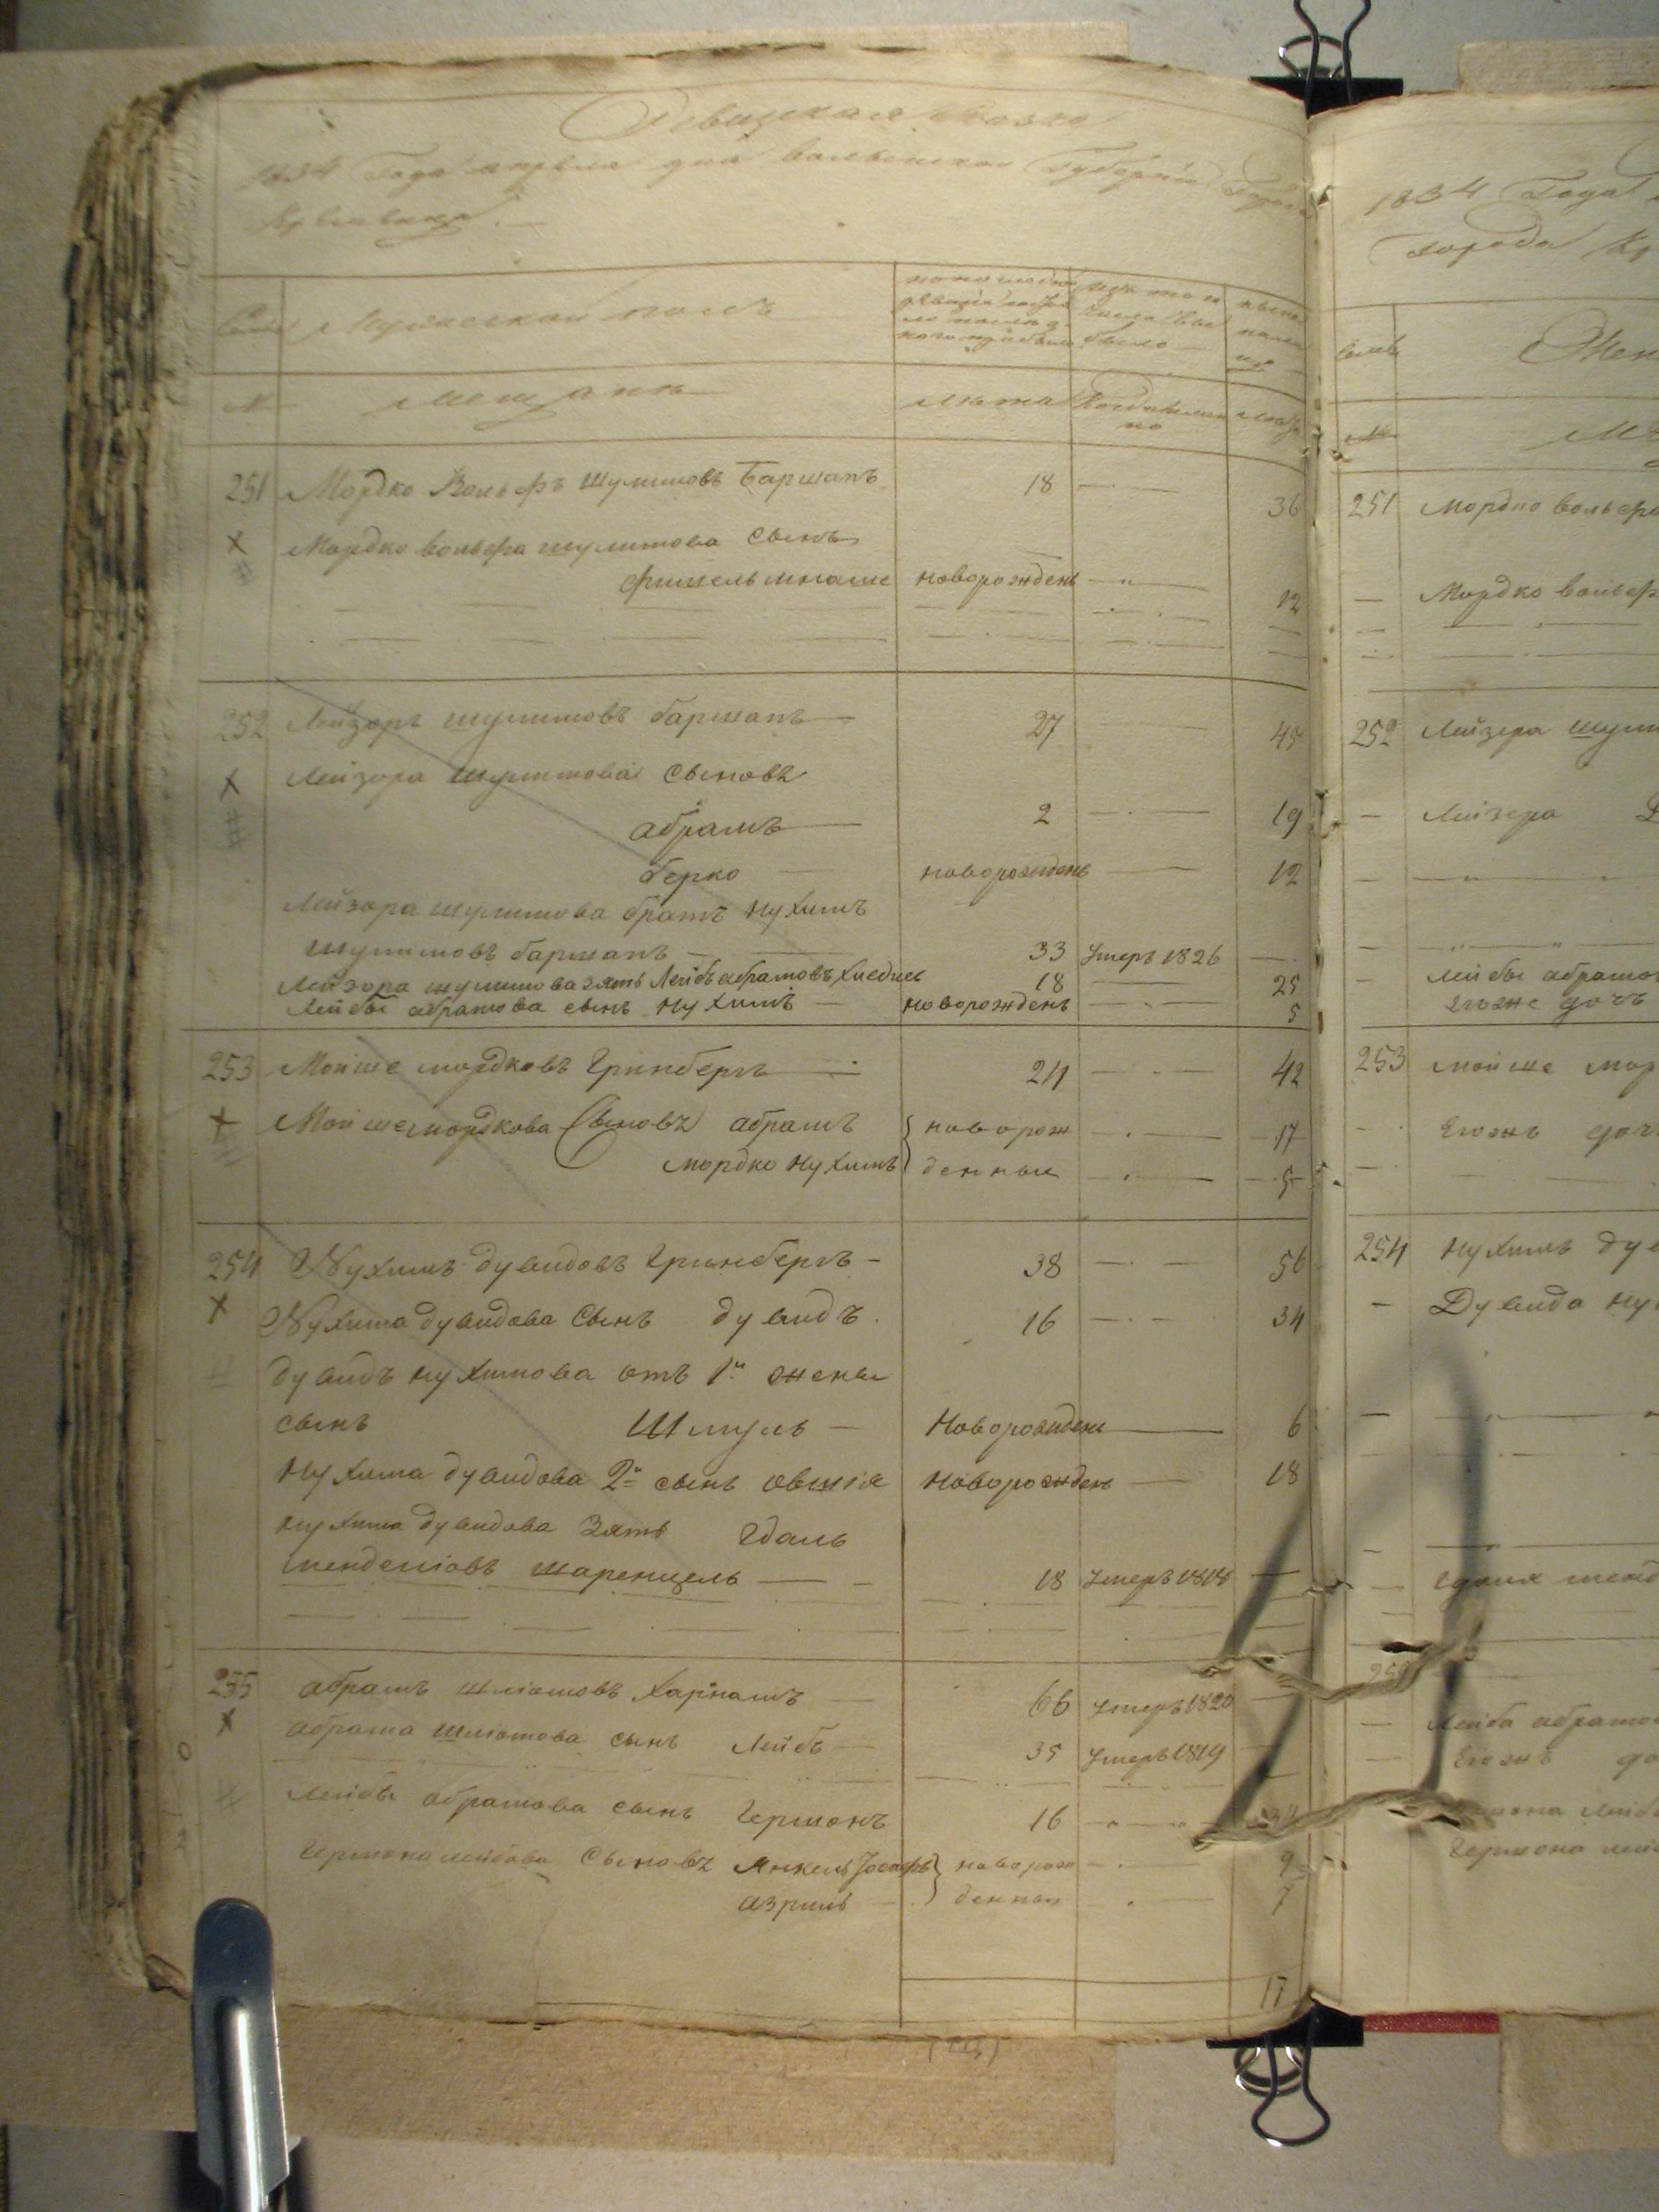 Ревизская Сказка
1834 Года апреля дня волынской Губернии Города
Кременца.
Семьи
Мужеской полъ
по последней ревизіи состояло и после оной прибыло
Изъ того числа выбыло
Ныне на лицо
№
мещане
лета
Когда именно
лета
251 Мордко Вольфъ Шулимовъ Барманъ 18 36
Мордко вольфа шулимова Сынъ
фишель мнаше новорожденъ 12
252 Лейзоръ шулимовъ барманъ 27 45
Лейзора Шулимова Сыновъя
абрамъ 2 19
берко новорожденъ 12
Лейзора шулимова братъ Нухимъ
шулимовъ барманъ 33 Умеръ 1826
Лейзора шулимова зять Лейбъ абрамовъ 18 25
Лейбы абрамова сынъ Нухимъ новорожденъ 5
253 Мойше мордковъ Гринбергъ 24 42
Мойше мордкова Сыновъя абрамъ новорож 17
мордко Нухимъ денные 5
254 Нухимъ дувидовъ Гринбергъ 38 56
Нухима дувидова Сынъ дувидъ 16 34
дувидъ нухимова отъ 1й жены
сынъ Шмуль Новорожденъ 6
Нухима дувидова 2й сынъ овшія Новорожденъ 18
Нухима дувидова Зять Гдаль
менделіовъ шаренцель 18 Умеръ 1818
255 абрамъ шліомовъ Харнамъ 66 Умеръ 1820
абрама шліомова сынъ Лейбъ 35 Умеръ 1819
Лейбы абрамова сынъ Гершонъ 16 34
Гершона лейбова Сыновъя Янкель Іосифъ новорож 9
азриль денные 7
17
1834 Года
города Кр
семьи
Жен
№
251 Мордко вольфа
Мордко вольф
252 Лейзера шули
Лейзера
Лейбы абрамов
Егоже дочь
253 мойше мор
Егожъ доч
254 Нухимъ дув
Дувида ну
гдаля менд
255
Лейба абрамо
Егожъ до
Гершона лейб
Гершона лей